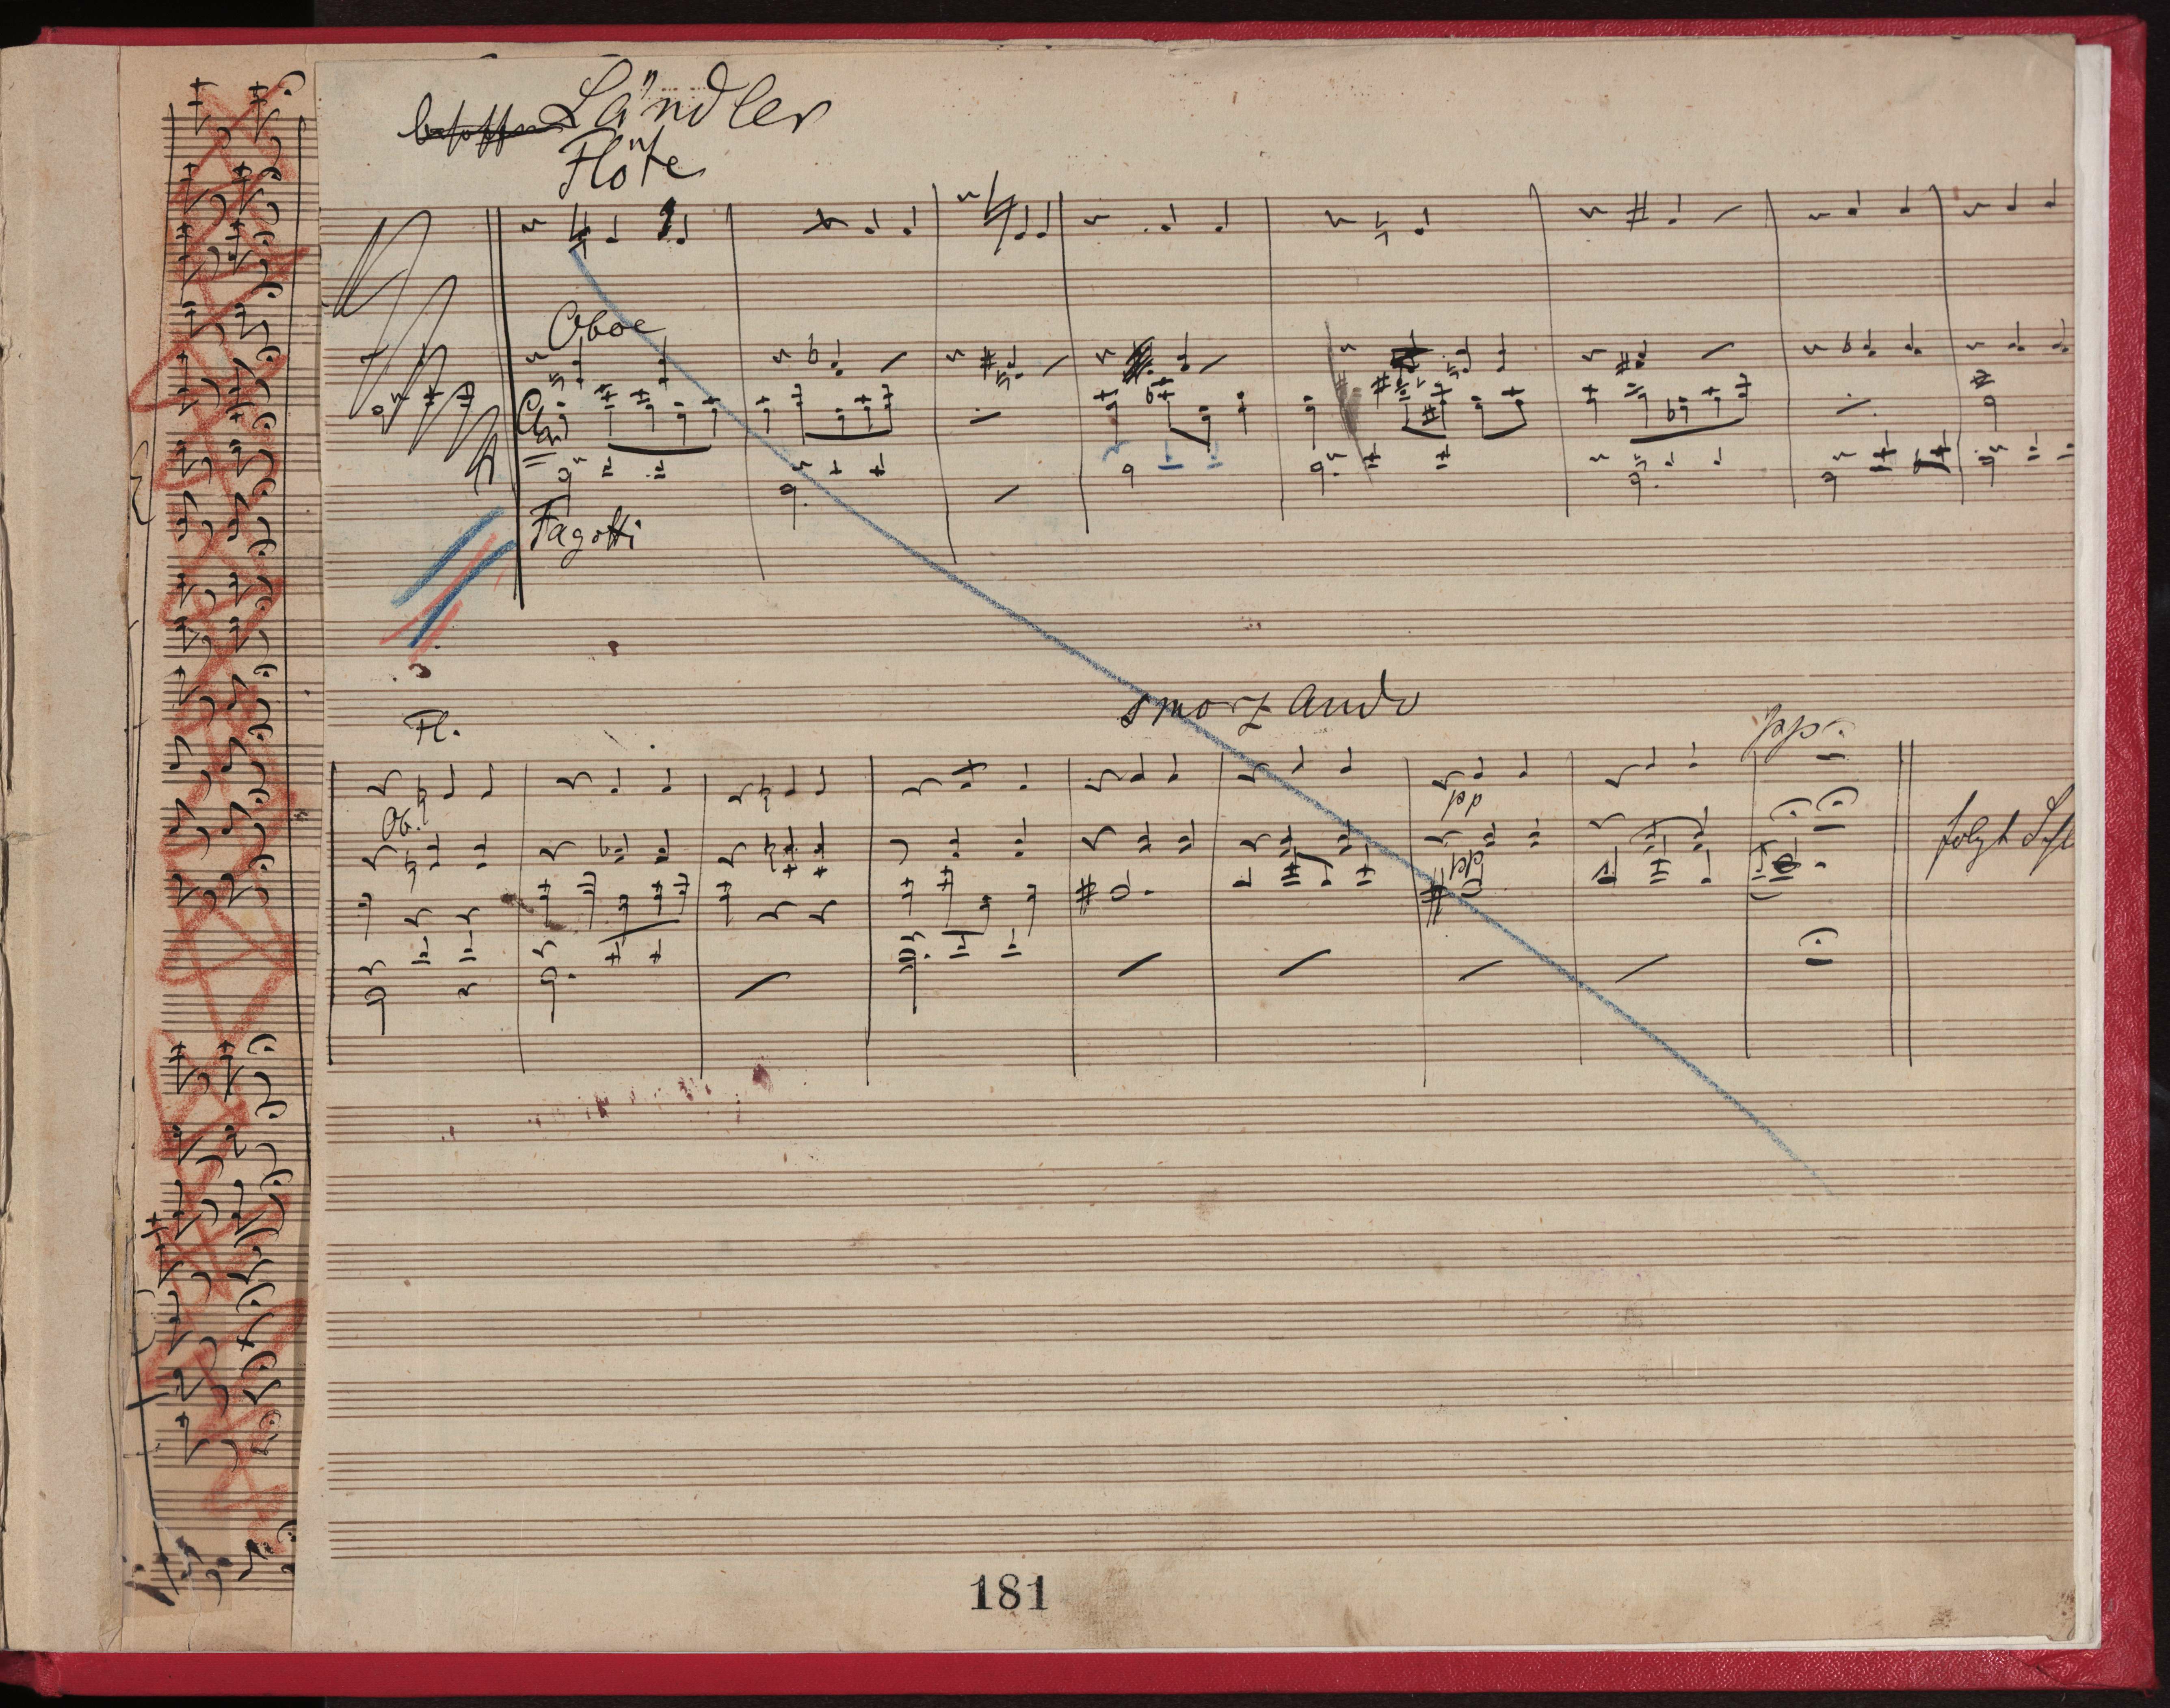 Ländler
Flöte
Oboe
Cl.
Fagotti
smorzando
Fl.
ppp
Ob.
pp
pp
folgt
181